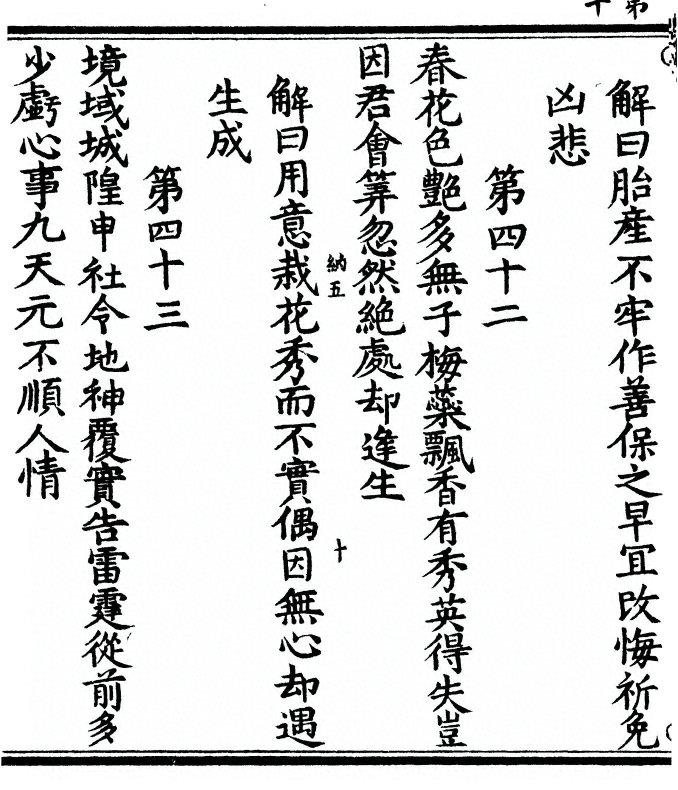 解曰胎產不牢作善保之早冝改悔祈免
凶悲
第四十二
春花色艷多無子梅蘂飄香有秀英得失豈
因君會筭忽然絶處却逢生
解曰用意栽花秀而不實偶因無心却遇
納五
十
生成
第四十三
境域城隍申社令地神覆實告雷霆從前多
少虧心事九天元不順人情